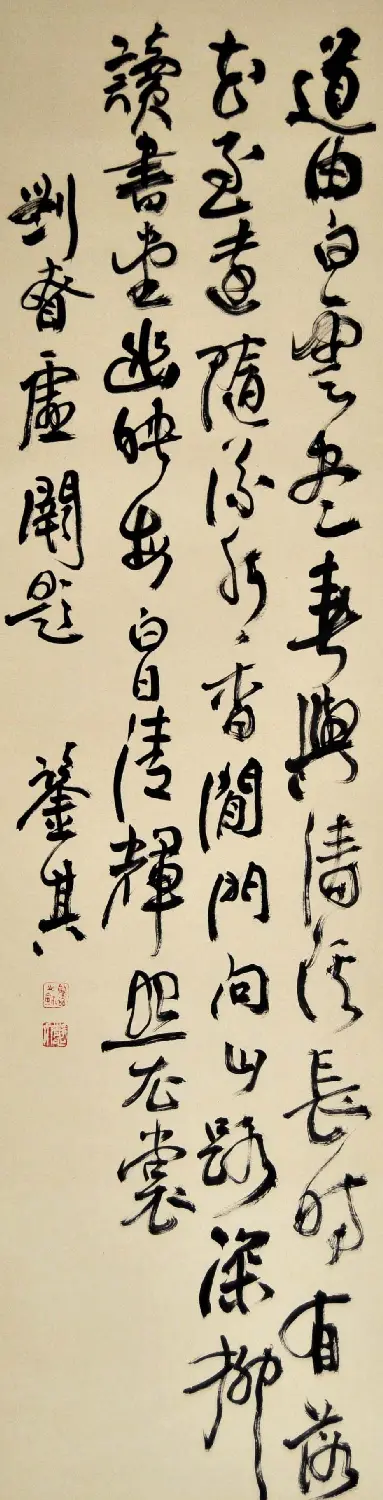 道由白雲盡春與清溪長時有落
花至遠隨流水香閒門向山路深柳
讀書堂幽映每白日清輝照衣裳
劉眘虛闕題 其